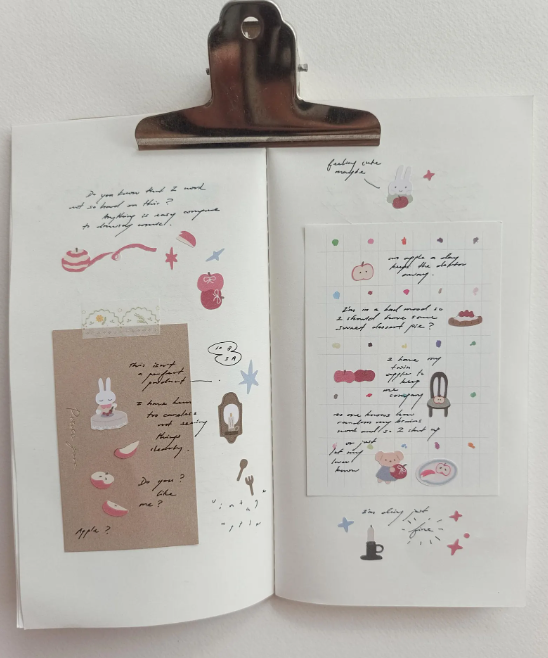 Do you know that I work
not so hard on this?
Anything is easy compare
to
This isn't
a perfect
product
I have been
too careless
not seeing
things
clearly.
Do you?
like
me?
Apple?
feeling cute
maybe
an apple a day
keeps the doctor
away.
I'm in a bad mood so
I should have some
sweet dessert pie?
I have my
twin
apple to
keep
me
company
no one knows how
my brains
work and so I shut up
or just
let my
know
I'm doing just
fine